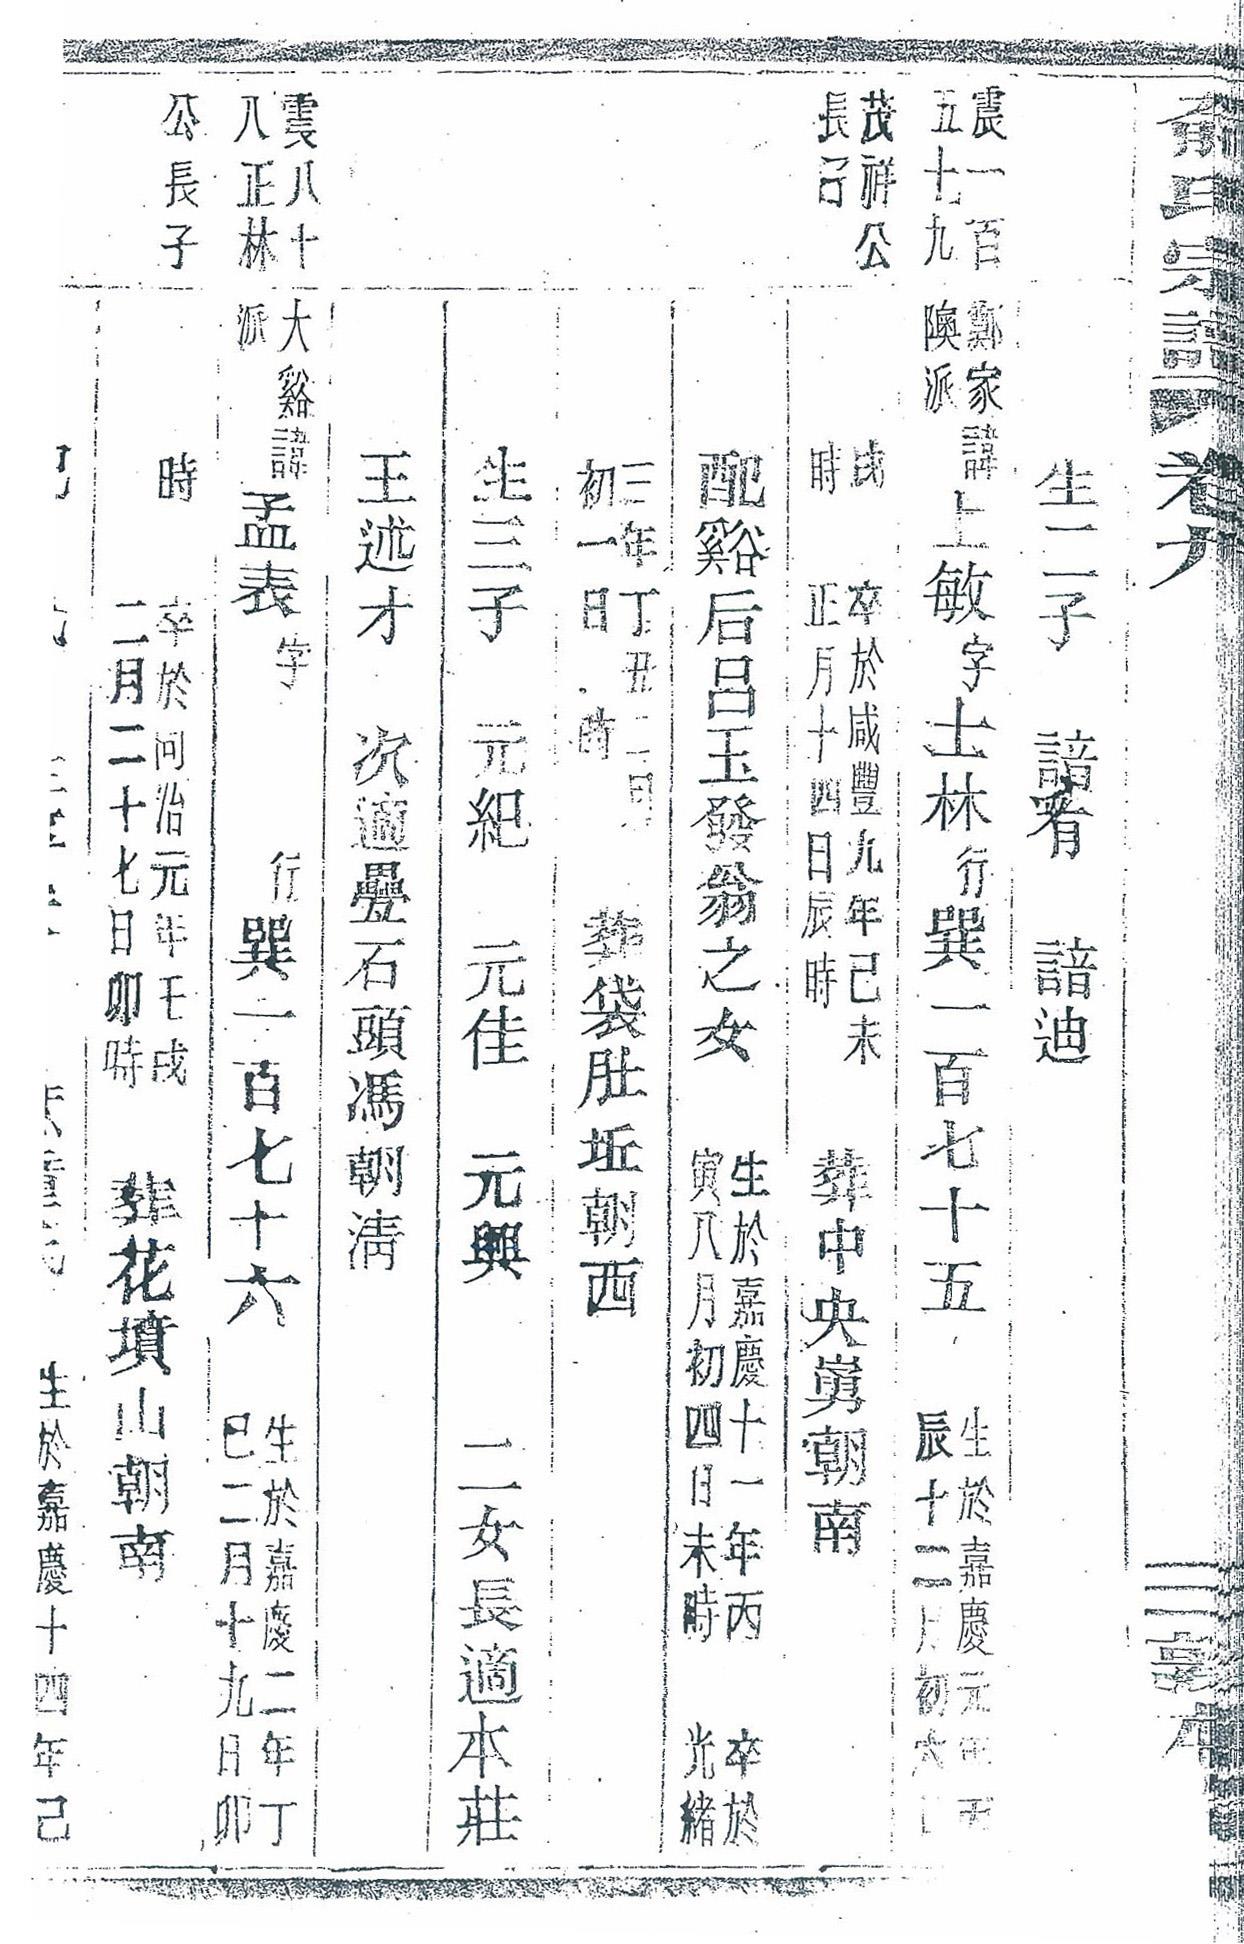 俞氏宗譜 卷九 三 敦本
生二子 諳看 諳迪
震一百
五十七九
鄭家
隩派
諱上敏字士林行巽一百七十五
生於嘉慶元年丙
辰十二月初六日
茂祥公
長子
戌
時
卒於咸豐九年己未
正月十四日辰時
葬中央嵏朝南
配谿后呂玉發翁之女
生於嘉慶十一年丙
寅八月初四日未時
卒於
光緒
三年丁丑二月
初一日 時
葬袋肚坵朝西
生三子 元紀 元佳 元興 二女長適本莊
王述才 次適疊石頭馮朝清
震八十
八正林
公長子
大谿
派
諱孟表字 行巽一百七十六
生於嘉慶二年丁
巳二月十九日卯
時
卒於同治元年壬戌
二月二十七日卯時
葬花墳山朝南
生於嘉慶十四年己